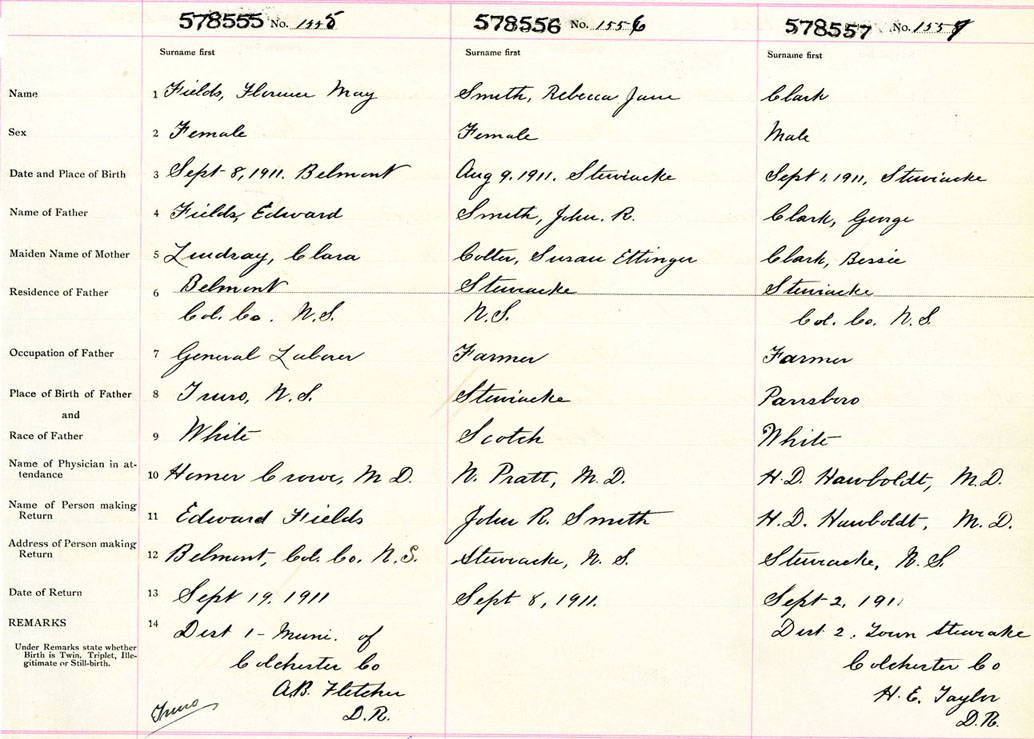 578555 No. 1555 578556 No. 1556 578557 No. 1557
Surname first Surname first Surname first
Name 1 Fields, Florence May Smith, Rebecca Jane Clark
Sex 2 Female Female Male
Date and Place of Birth 3 Sept 8, 1911. Belmont Aug 9. 1911. Stewiacke Sept 1, 1911, Stewiacke
Name of Father 4 Fields, Edward Smith, John. R. Clark, George
Maiden Name of Mother 5 Lindsay, Clara Colter, Susan Ettinger Clark, Bessie
Residence of Father 6 Belmont Stewiacke Stewiacke
Col. Co. N.S. N.S. Col. Co. N.S.
Occupation of Father 7 General Laborer Farmer Farmer
Place of Birth of Father 8 Truro, N.S. Stewiacke Parrsboro
and
Race of Father 9 White Scotch White
Name of Physician in at-
tendance 10 Homer Crowe, M D. N. Pratt, M.D. H.D. Hawboldt, M.D.
Name of Person making
Return 11 Edward Fields John R. Smith H.D. Hawboldt, M.D.
Address of Person making
Return 12 Belmont, Col. Co. N.S. Stewiacke, N.S. Stewiacke, N.S.
Date of Return 13 Sept 19. 1911 Sept 8, 1911. Sept 2, 1911
REMARKS 14
Under Remarks state whether
Birth is Twin, Triplet, Ille-
gitimate or Still-birth.
Dist 1 - Muni. of
Colchester Co
A.B. Fletcher
D.R.
Truro
Dist 2. Town Stewiacke
Colchester Co
H. E. Taylor
D.R.